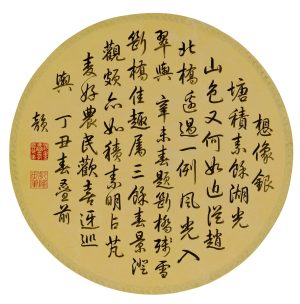 想像銀
塘積素餘湖光
山色又何如近從趙
北橋邊過一例風光入
翠輿 辛未春題斷橋殘雪
斷橋佳趣屬三餘春景澄
觀頗亦如積素明占芃
麦好農民歡喜迓巡
輿 丁丑春疊前
韻